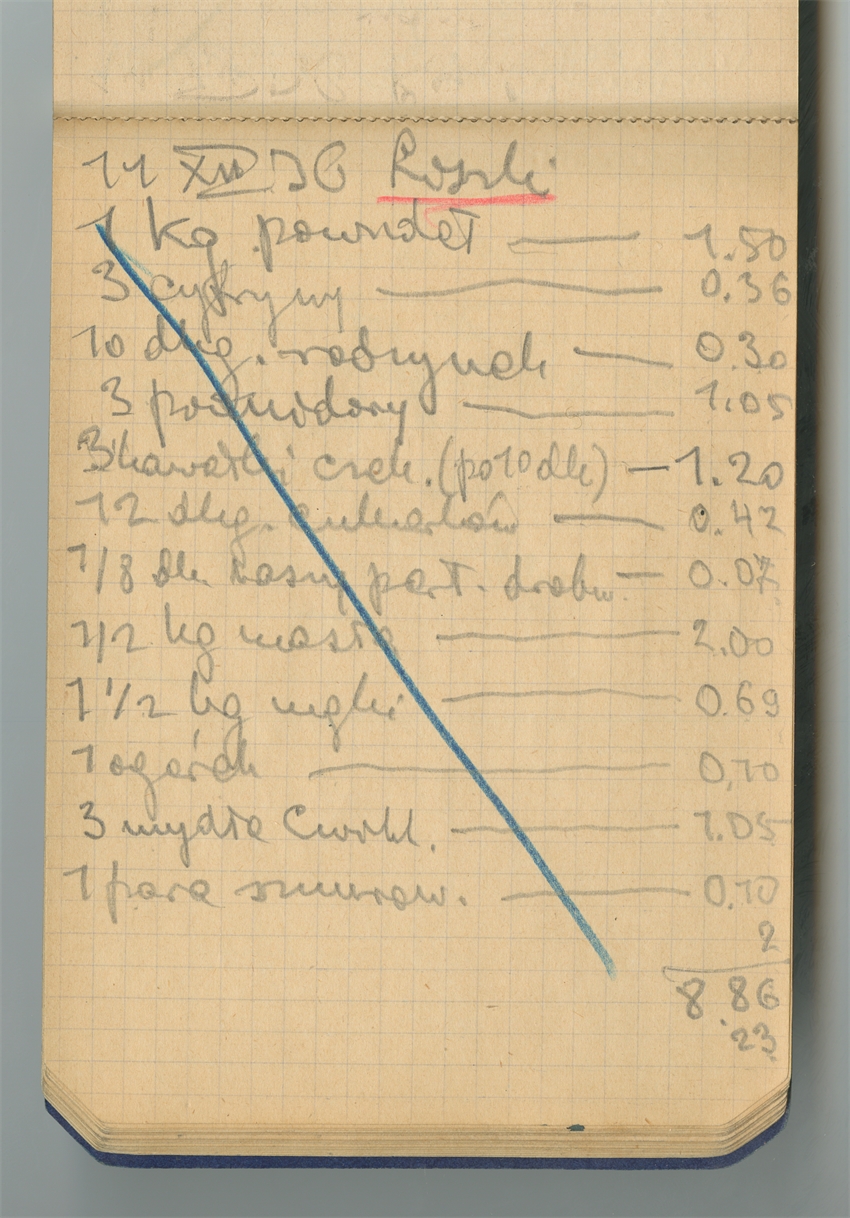 11 XII 36 Koszki
1 kg powideł — 1.50
3 cytryny — 0.36
10 dkg. rodzynek — 0.30
3 pomidory — 1.05
3 kawałki czek. (po 10 dk) — 1.20
12 dkg. cukierków — 0.42
1/8 dk. kaszy perł. drobn. — 0.07
1/2 kg masła — 2.00
1 1/2 kg mąki — 0.69
1 ogórek — 0,10
3 mydła Cwikl. — 1.05
1 para sznurow. — 0.10
2
8.86
23